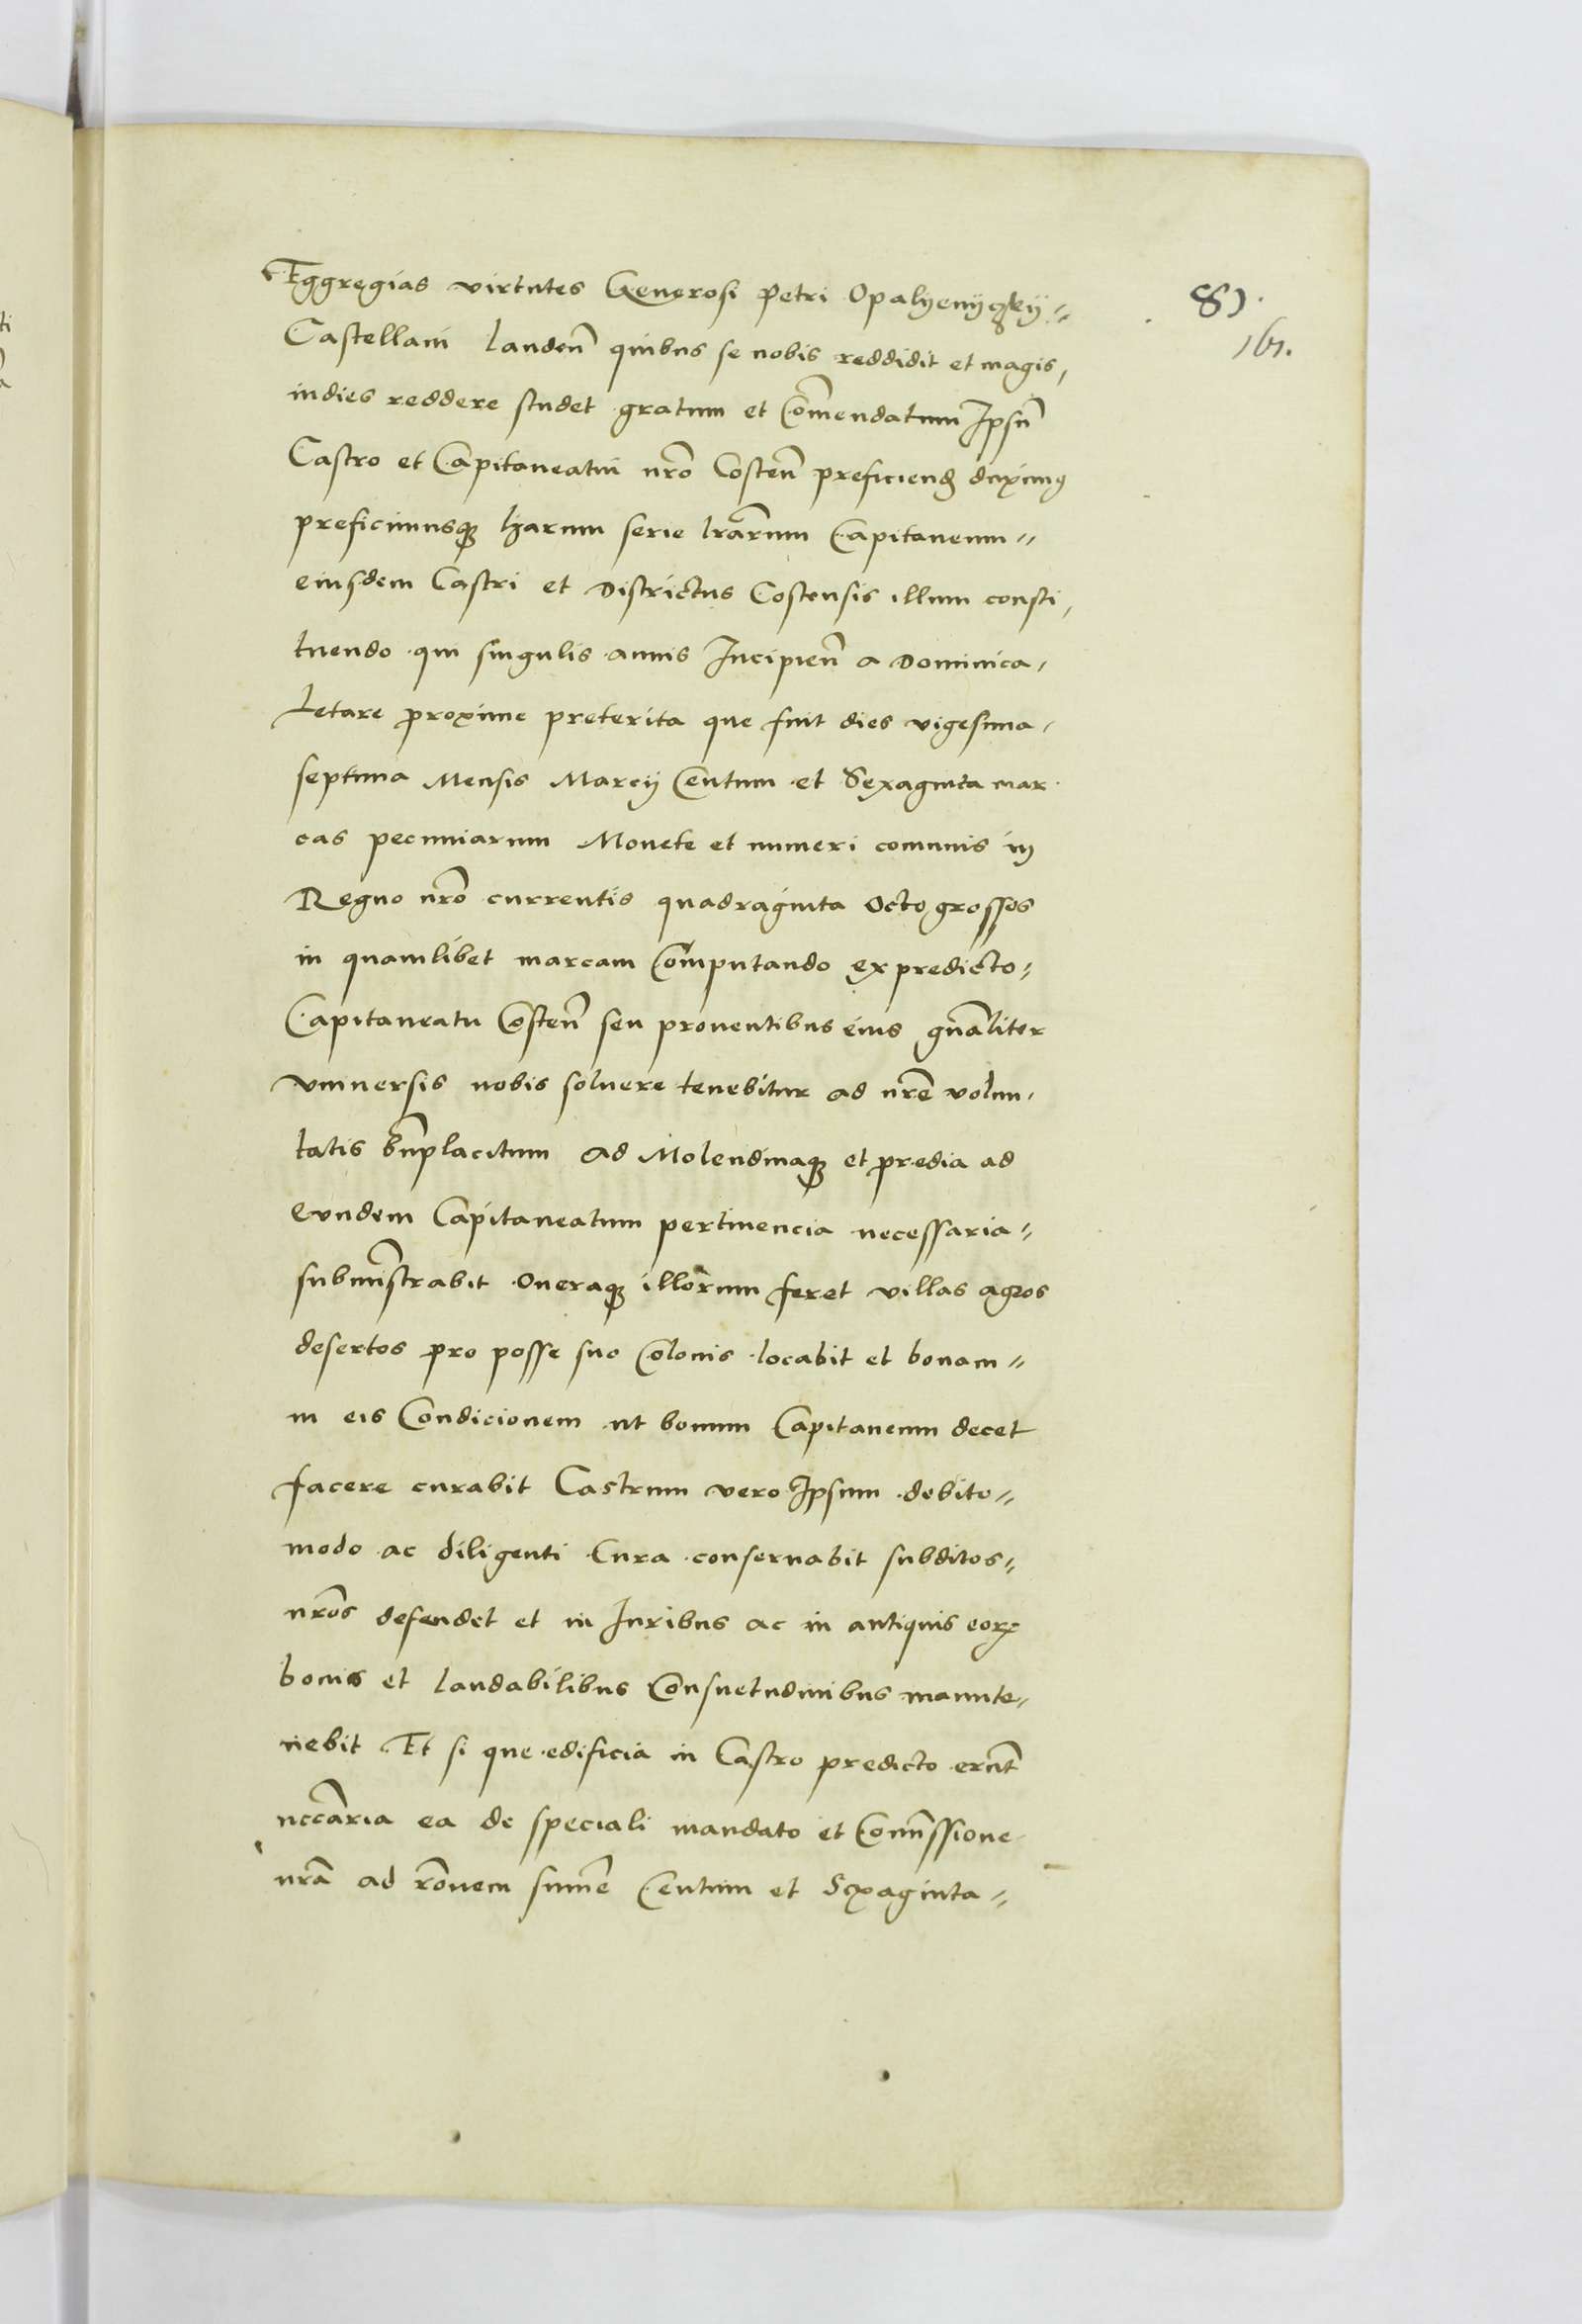 Eggregias virtutes Generosi Petri Opalyenyczky
81.
Castellani landen̄ quibus se nobis reddidit et magis
161.
indies reddere studet gratum et Com̄endatum Ipsū
Castro et Capitaneatui nr̄o Costen̄ preficiend duximus
preficimusque harum serie lr̄arum Capitaneum
eiusdem Castri et Districtus Costensis illum consti
tuendo qui singulis annis Incipien̄ a Dominica
Letare proxime preterita que fuit dies vigesima
septima Mensis Marcij Centum et Sexaginta mar
cas pecuniarum Monete et numeri comunis in
Regno nr̄o currentis quadraginta Octo grossos
in quamlibet marcam Computando ex predicto
Capitaneatu Costen̄ seu prouentibus eius gn̄aliter
vniuersis nobis soluere tenebitur ad nr̄e volun
tatis bn̄placitum Ad Molendinaque et predia ad
Eundem Capitaneatum pertinencia necessaria
submīstrabit Oneraque illorum feret villas agros
desertos pro posse suo Colonis locabit et bonam
in eis Condicionem ut bonum Capitaneum decet
facere curabit Castrum vero Ipsum debito
modo ac diligenti Cura conseruabit subditos
nr̄os defendet et in Iuribus ac in antiquis eorꝝ
bonis et laudabilibus Consuetudinibus manute
nebit Et si que edificia in Castro predicto erūt
nccār̄ia ea de speciali mandato et Com̄issione
nr̄a ad rōnem sum̄e Centum et Sexaginta